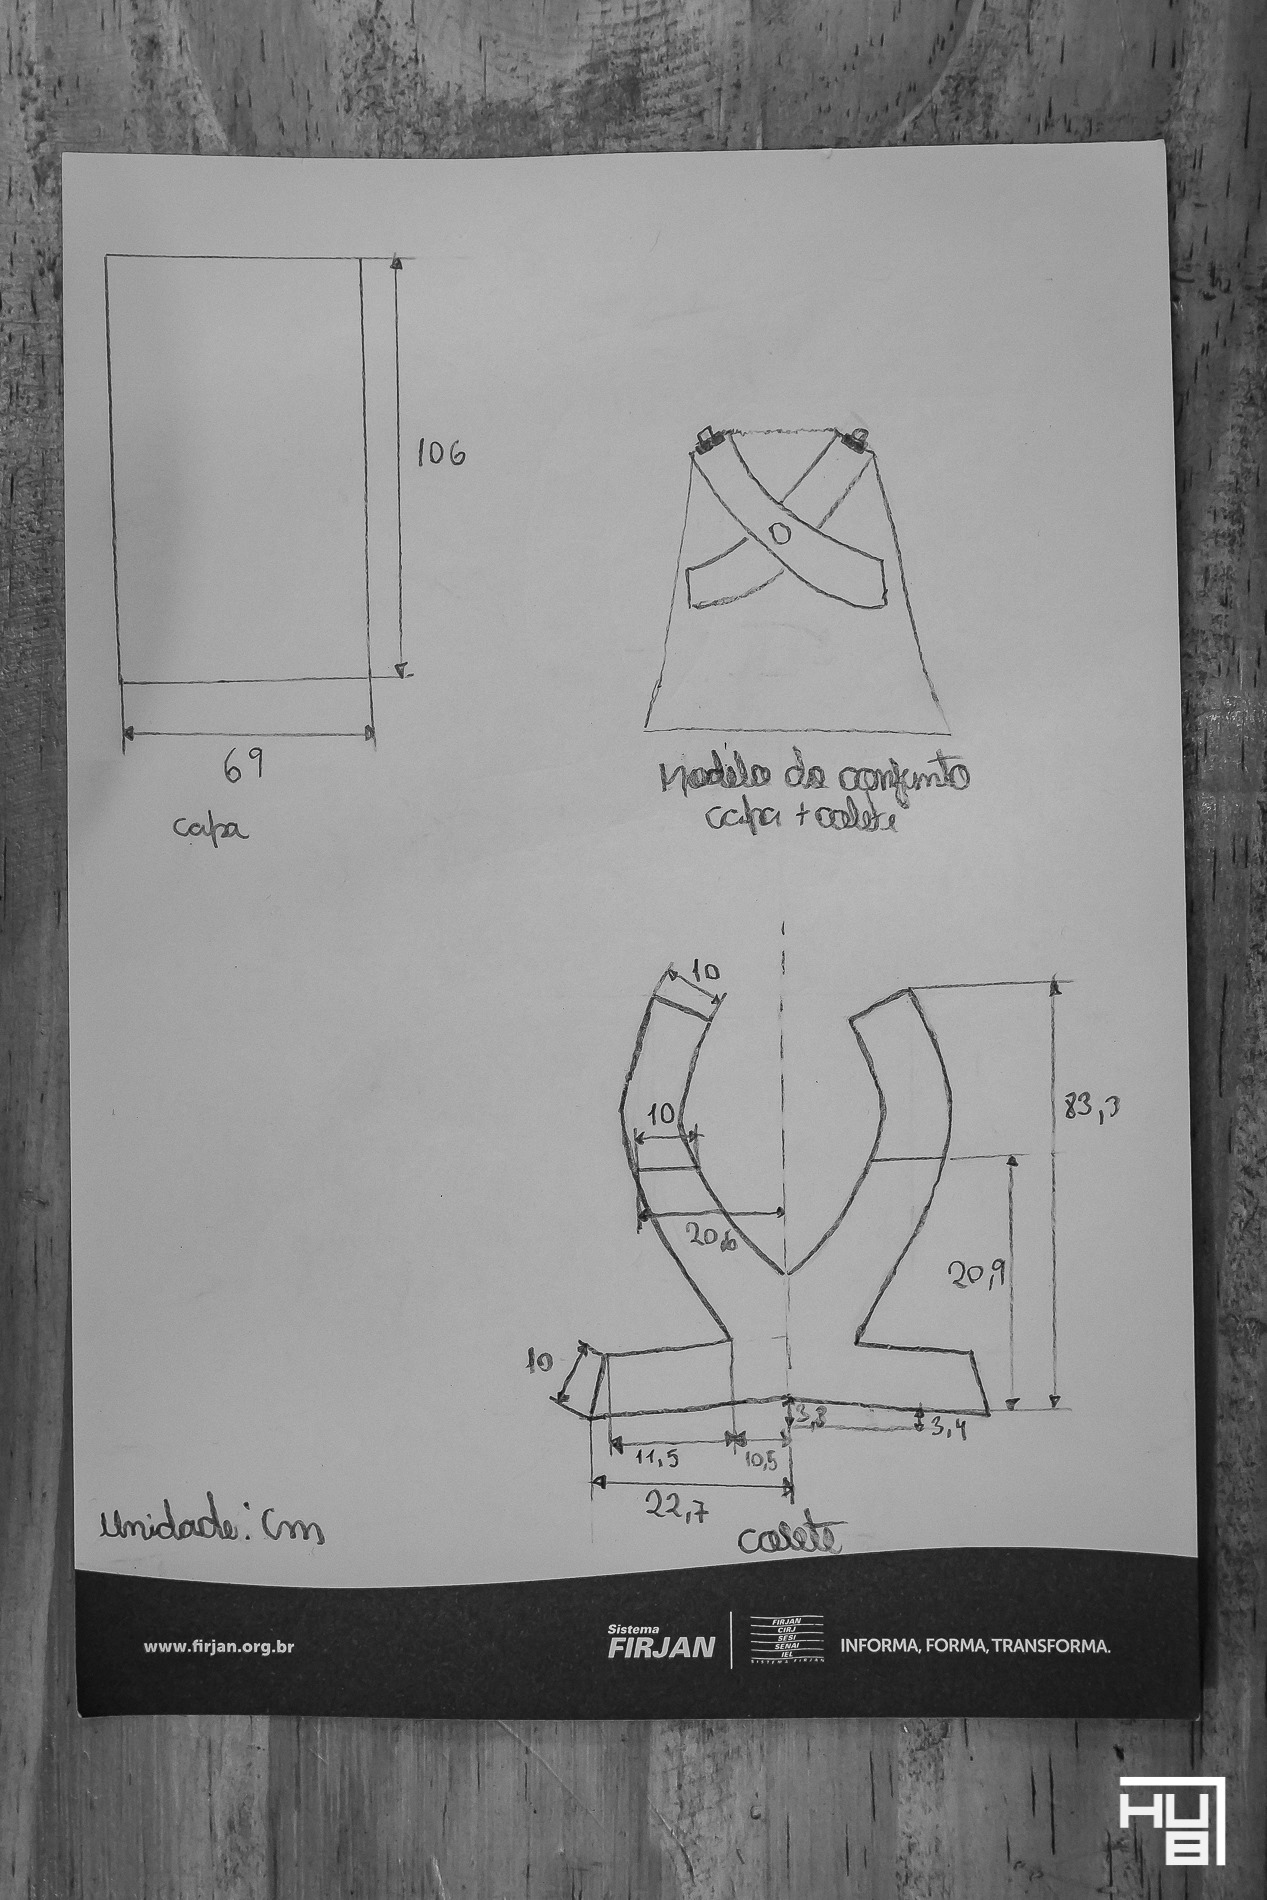 106
69
capa
Modelo do conjunto
capa + colete
10
10
83,3
20,6
20,9
10
3,8
3,4
11,5
10,5
22,7
colete
Unidade: Cm
www.firjan.org.br
Sistema
FIRJAN
FIRJAN
CIRJ
SESI
SENAI
IEL
SISTEMA FIRJAN
INFORMA, FORMA, TRANSFORMA.
HUB